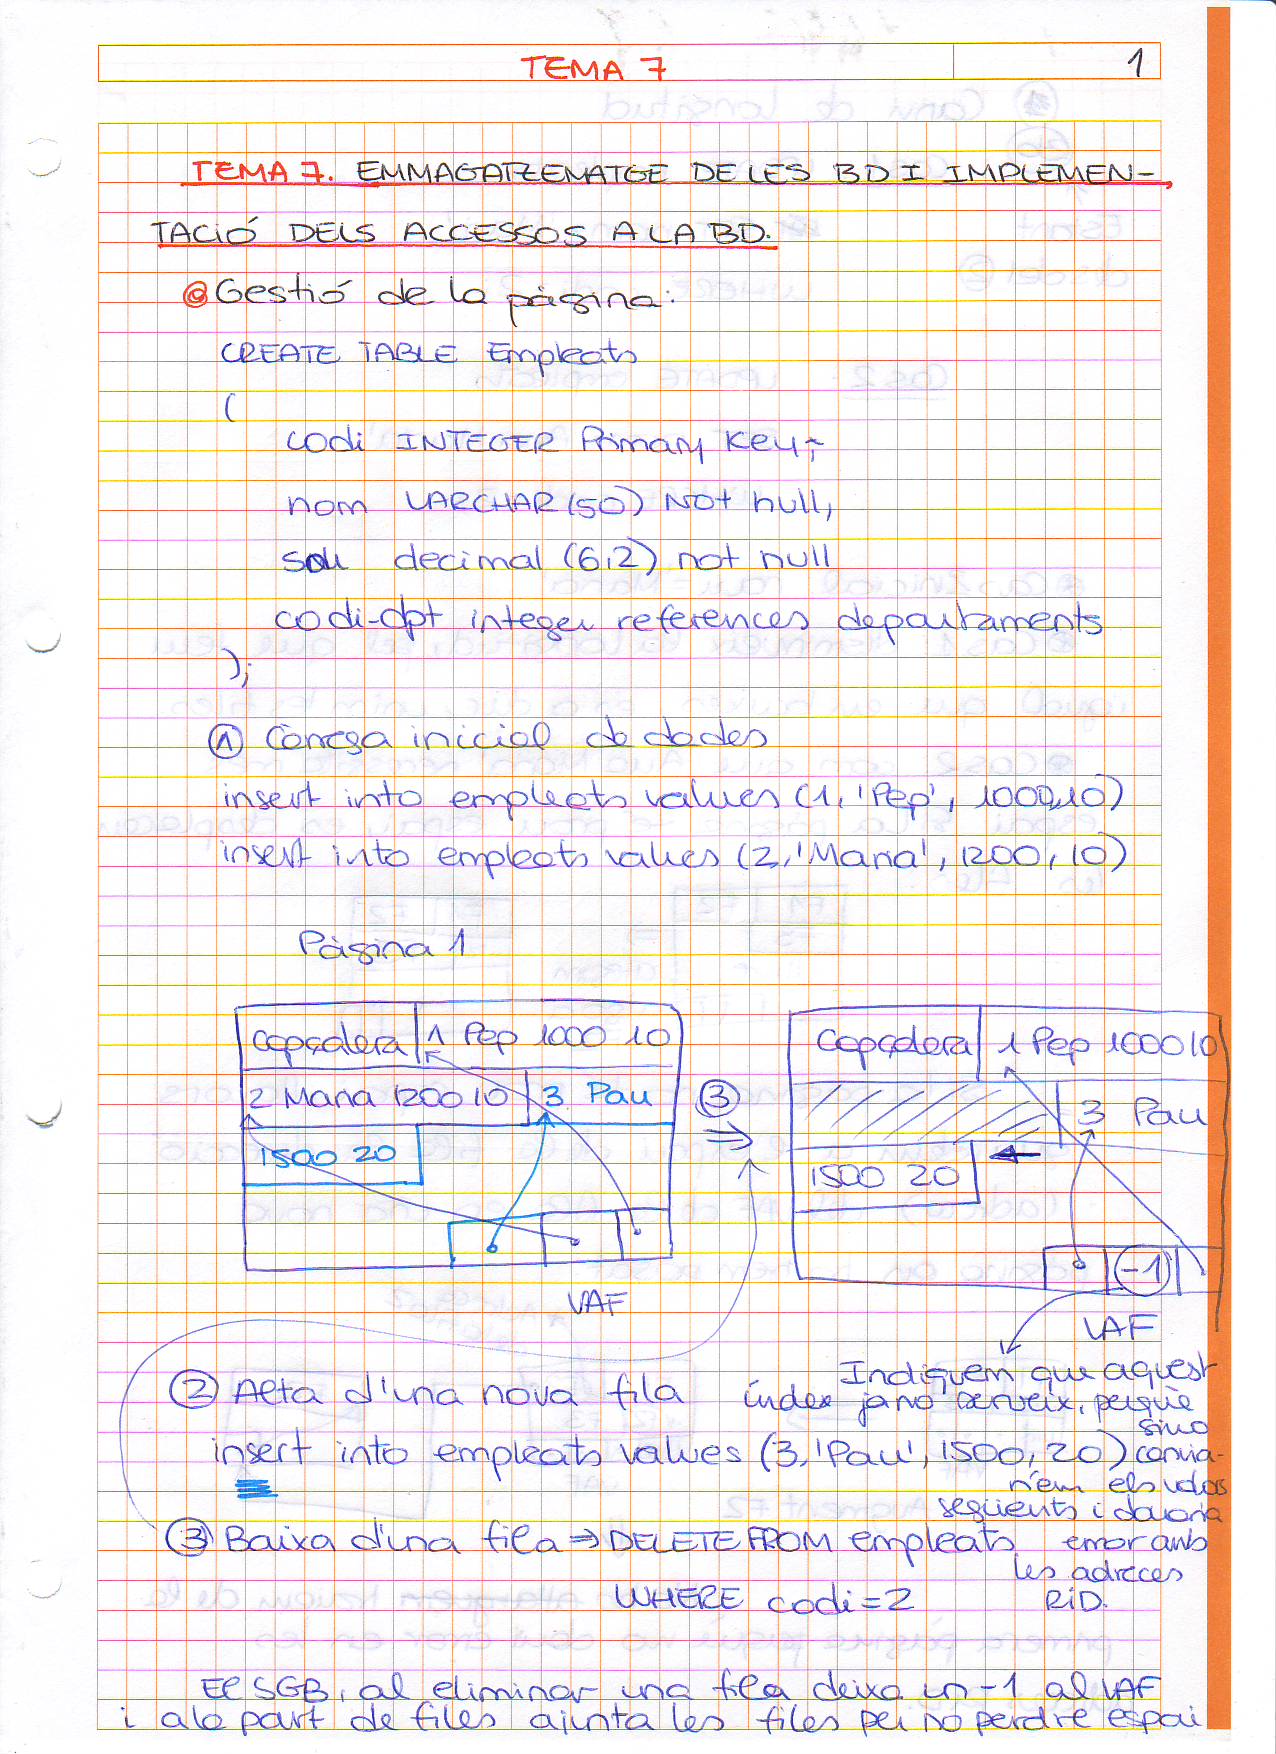 TEMA 7 1
TEMA 7. EMMAGATZEMATGE DE LES BD I IMPLEMEN-
TACIÓ DELS ACCESSOS A LA BD.
@ Gestió de la pàgina:
CREATE TABLE Empleats
(
codi INTEGER Primary Key,
nom VARCHAR(50) Not null,
sou decimal (6,2) not null
codi-dpt integer references departaments
);
① Càrrega inicial de dades
insert into empleats values (1, 'Pep', 1000,10)
insert into empleats values (2, 'Maria', 1200, 10)
Pàgina 1
Capçalera 1 Pep 1000 10
2 Maria 1200 10 3 Pau
1500 20
VAF
③ ⇒
Capçalera 1 Pep 1000 10
3 Pau
1500 20
-1
VAF
Indiquem que aquest
índex ja no serveix, perquè
sino
canvia-
riem els valors
següents i davaria
error amb
les adreces
RID.
② Alta d'una nova fila
insert into empleats values (3, 'Pau', 1500, 20)
③ Baixa d'una fila ⇒ DELETE FROM empleats
WHERE codi = 2
El SGB, al eliminar una fila deixa un -1 al VAF
i a la part de files ajunta les files per no perdre espai